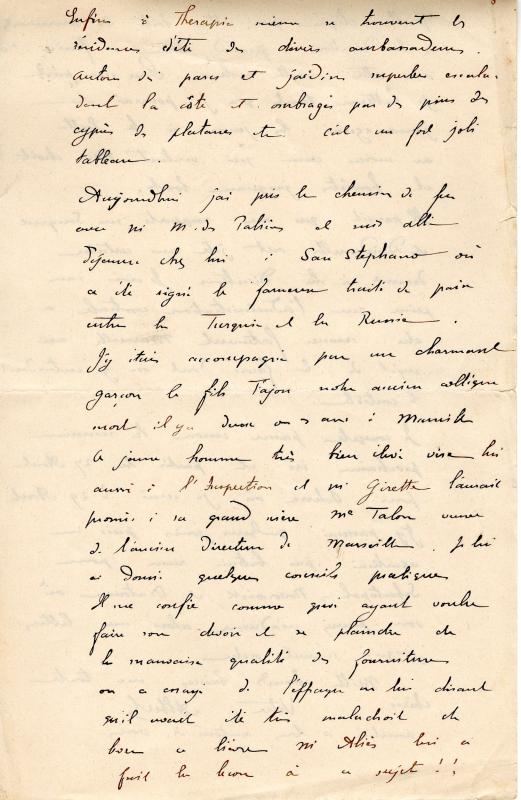 Enfin à Therapia même se trouvent les
résidences d'été des divers ambassadeurs.
autour des parcs et jardins superbes escala-
dant la côte et ombragés par des pins des
cyprès des platanes etc cest un fort joli
tableau.
Aujourdhui jai pris le chemin de fer
avec mr M. des Palières et suis allé
déjeuner chez lui à San Stephano où
a été signé le fameux traité de paix
entre la Turquie et la Russie.
J'y étais accompagné par un charmant
garçon le fils Tajon notre ancien collègue
mort il y a deux ou 3 ans à Marseille
Ce jeune homme très bien élevé vise lui
aussi à l'Inspection et mr Girette l'avait
promis à sa grand mère Me Talon veuve
de l'ancien Directeur de Marseille. Je lui
ai donné quelques conseils pratiques
Il me confie comme quoi ayant voulu
faire son devoir et se plaindre de
la mauvaise qualité des fournitures
on a essayé de l'effrayer en lui disant
qu'il avait été très maladroit de
ce mr Aliès lui a
fait la leçon à ce sujet!!